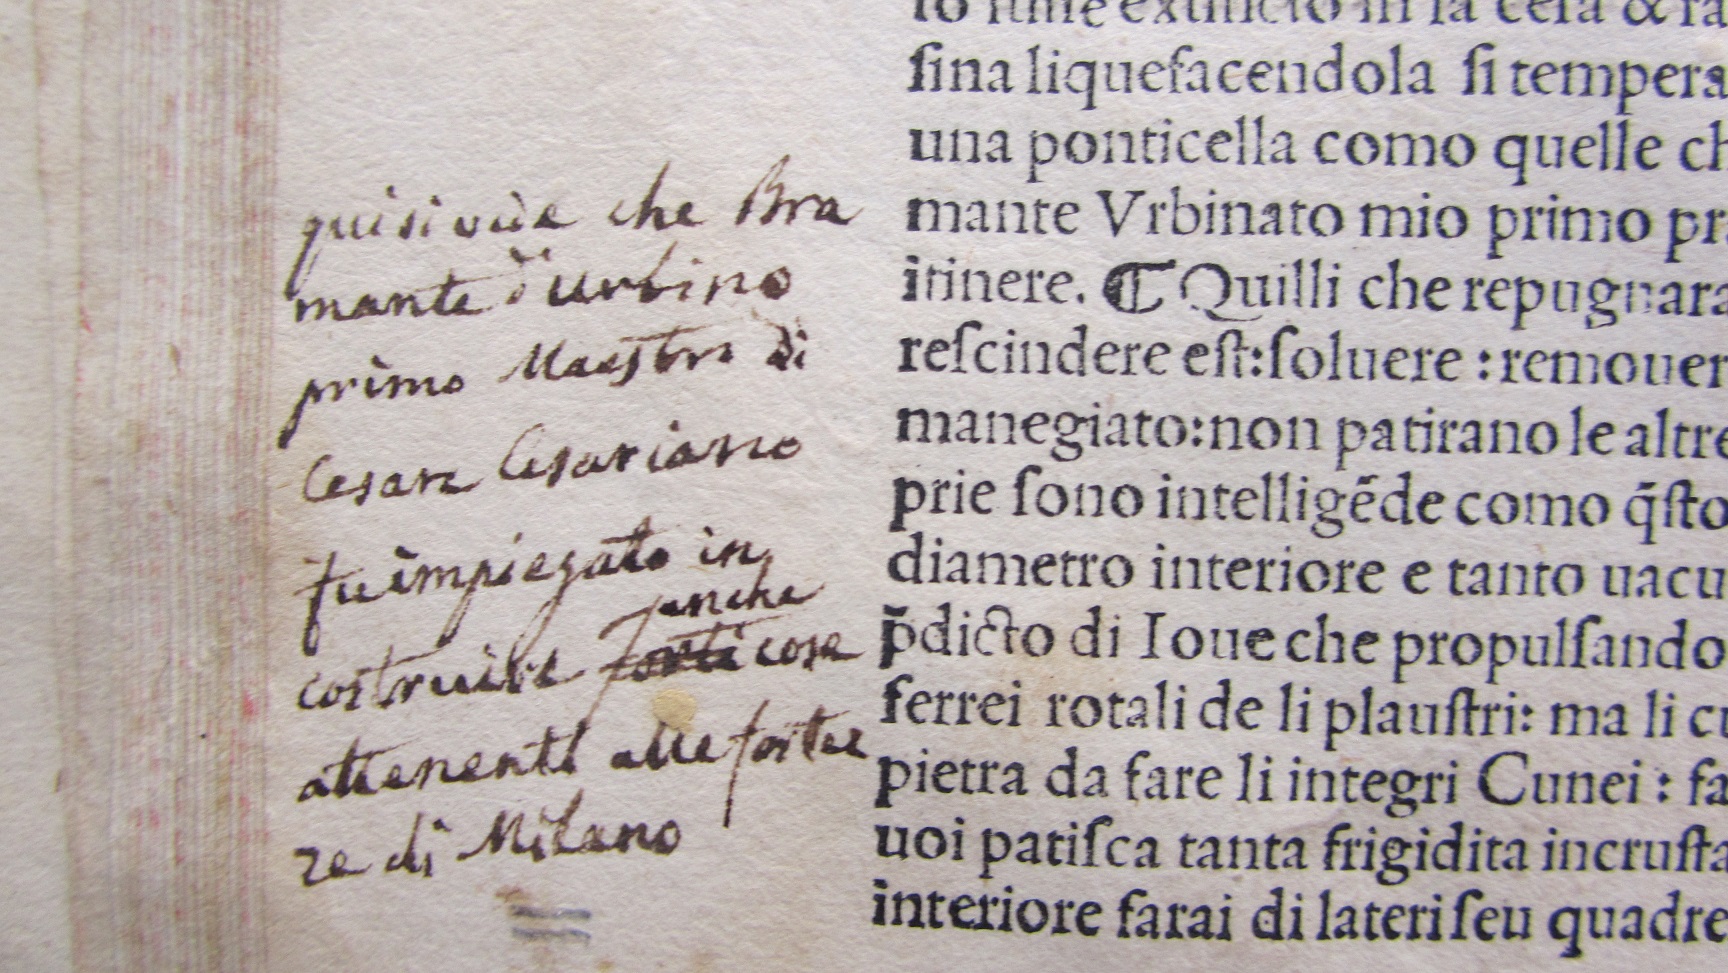 qui si vide che Bra
mante d'Urbino
primo Maestro di
Cesare Cesariano
fu impiegato in
anche
costruire forti cose
attenenti alle fortez
ze di Milano
ſina liquefacendola ſi tempera
una ponticella como quelle ch
mante Vrbinato mio primo pr
itinere. ⁋ Quilli che repugnara
reſcindere eſt:ſoluere :remouer
manegiato:non patirano le altre
prie ſono intelligẽde como q̃ſto
diametro interiore e tanto uacu
p̄dicto di Ioue che propulſando
ferrei rotali de li plauſtri: ma li cu
pietra da fare li integri Cunei : fa
uoi patiſca tanta frigidita incruſta
interiore farai di lateri ſeu quadre